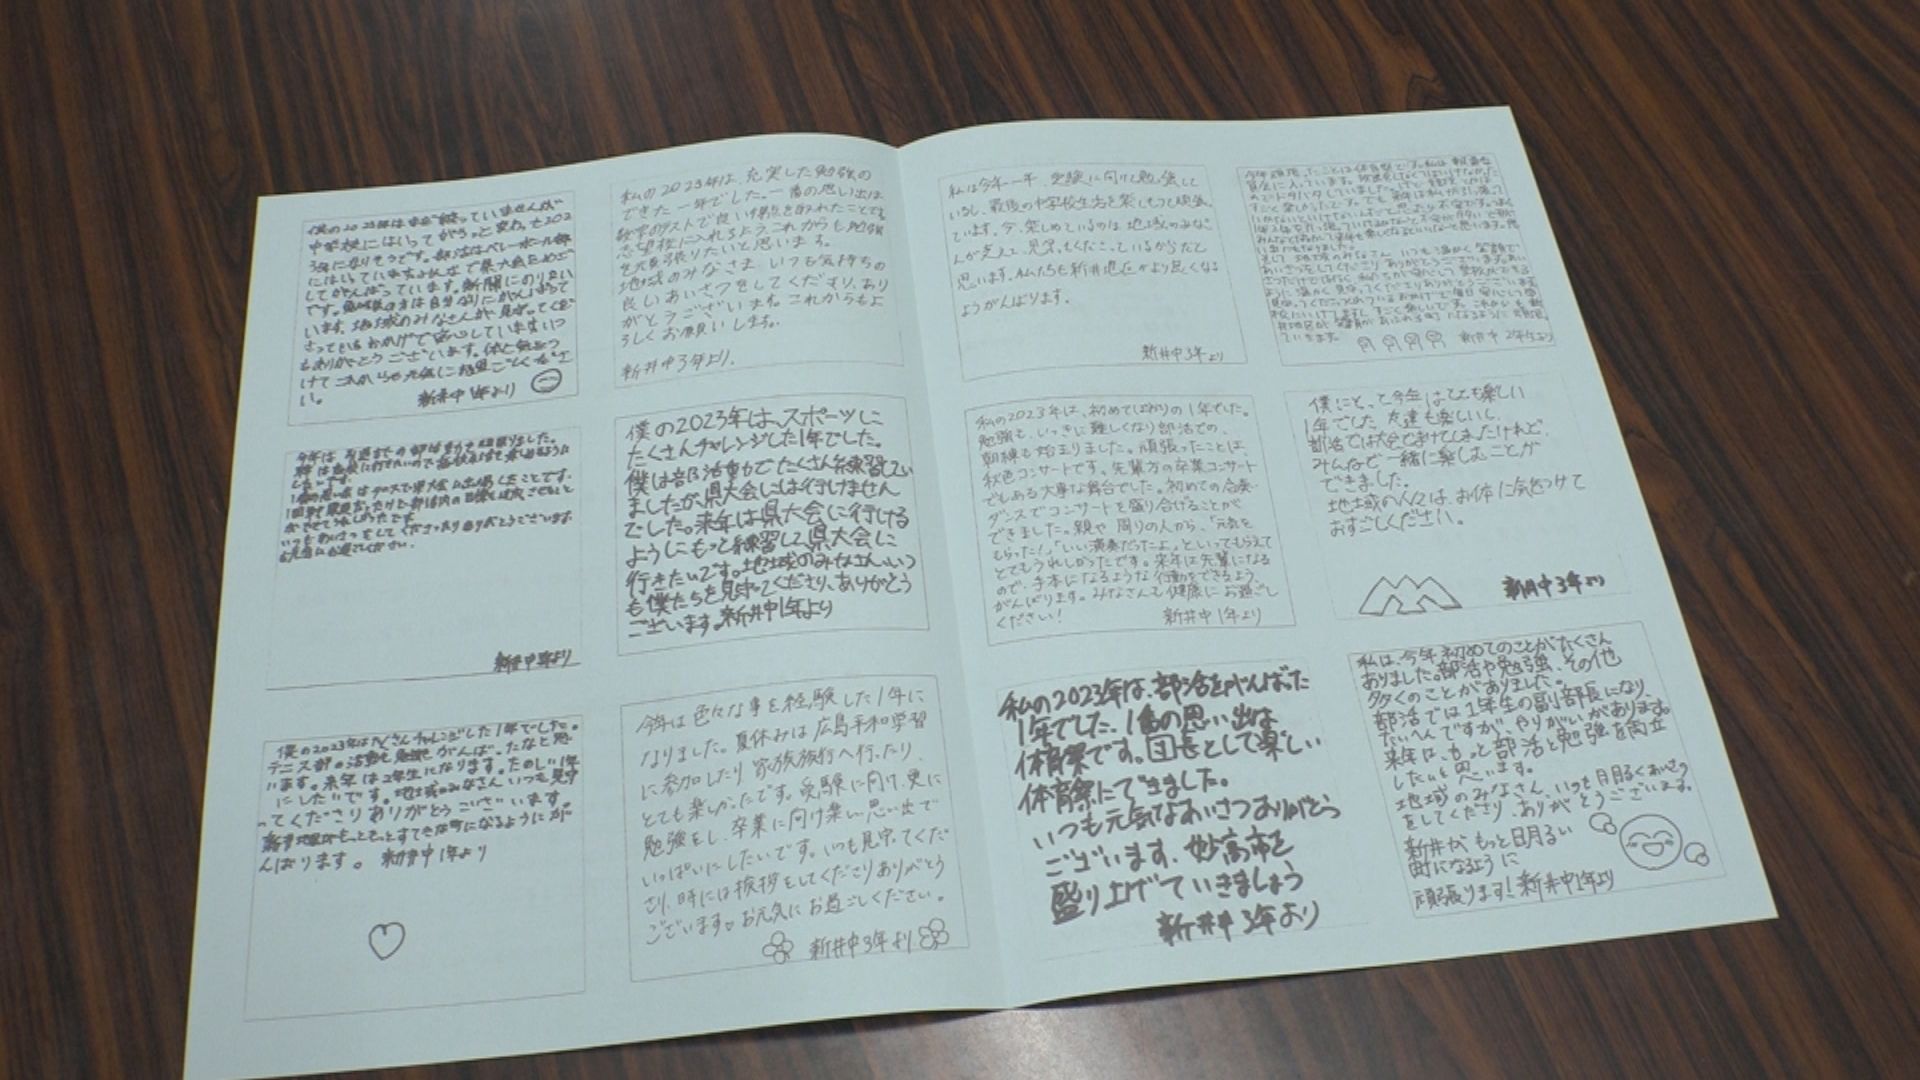 僕の2023年はまだ終っていませんが
中学校にはいってがらっと変わった202
3年になりそうです。部活はバレーボール部
にはいっています。みんなで県大会ためざ
してがんばっています。新聞にのりたい
です。勉強の方は自分なりにがんばって
います。地域のみなさんが見守ってくだ
さっているおかげで安心しています。いつ
もありがとうございます。体に気をつ
けてこれからも元気にお過ごしくださ
い。
新井中1年より
今年は引退までの部活を頑張りました。
1番の思い出はテニスで県大会に出場したことです。
いつもあいさつをしてくださったりありがとうございます。
お元気にお過ごしください。
新井中3年より
僕の2023年はたくさんチャレンジした1年でした。
テニス部の活動も勉強もがんばったなと思
います。来年は2年生になります。たのしい1年
にしたいです。地域のみなさん、いつも見守
ってくださりありがとうございます。
新井地区がもっともっとすてきな町になるようにが
んばります。 新井中1年より
私の2023年は、充実した勉強の
できた一年でした。一番の思い出は、
数学のテストで良い得点を取れたことです。
志望校に入れるようこれからも勉強
を頑張りたいと思います。
地域のみなさま いつも気持ちの
良いあいさつをしてくださり、あり
がとうございます。これからもよ
ろしくお願いします。
新井中3年より。
僕の2023年は、スポーツに
たくさんチャレンジした1年でした。
僕は部活動でたくさん練習してい
ましたが県大会には行けません
でした。来年は県大会に行ける
ようにもっと練習して県大会に
行きたいです。地域のみなさん、いつ
も僕たちを見守ってくださり、ありがとう
ございます。新井中1年より
今年は色々な事を経験した1年に
なりました。夏休みは広島平和学習
に参加したり家族旅行へ行ったり、
とても楽しかったです。受験に向け、更に
勉強をし、卒業に向け楽しい思い出で
いっぱいにしたいです。いつも見守ってくだ
さり、時には挨拶をしてくださりありがとう
ございます。お元気にお過ごしください。
新井中3年より
私は今年一年、受験に向けて勉強して
いるし、最後の中学校生活を楽しもうと頑張っ
ています。今、楽しめているのは地域のみなさ
んが支えて、見守ってくださっているからだと
思います。私たちも新井地区がより良くなる
ようがんばります。
新井中3年より
私の2023年は、初めてばかりの1年でした。
勉強も、いっきに難しくなり部活での、
朝練も始まりました。頑張ったことは、
秋色コンサートです。先輩方の卒業コンサート
でもある大事な舞台でした。初めての合奏、
ダンスでコンサートを盛り合げることが
できました。親や周りの人から、「元気を
もらった!」「いい演奏だったよ。」といってもらえて
とてもうれしかったです。来年は先輩になる
ので、手本になるような行動をできるよう、
がんばります。みなさんも健康にお過ごし
ください!
新井中1年より
私の2023年は、部活をがんばった
1年でした。1番の思い出は
体育祭です。団長として楽しい
体育祭にできました。
いつも元気なあいさつありがとう
ございます。妙高市を
盛り上げていきましょう
新井中3年より
そして地域のみなさん、いつも温かく笑顔で
あいさつをしてくださりありがとうございます。
新井中2年生より
僕にとって今年はとても楽しい
1年でした。友達も楽しいし、
部活では大会でまけてしまったけれど、
みんなで一緒に楽しむことが
できました。
地域の人々は、お体に気をつけて
おすごしください。
新井中3年より
私は、今年初めてのことがたくさん
ありました。部活や勉強、その他
多くのことがありました。
部活では1年生の副部長になり、
たいへんですが、やりがいがあります。
来年は、もっと部活と勉強を両立
したいと思っています。
地域のみなさん、いつも明るくあいさつ
をしてくださり、ありがとうございます。
新井がもっと明るい
町になるように
頑張ります!新井中1年より